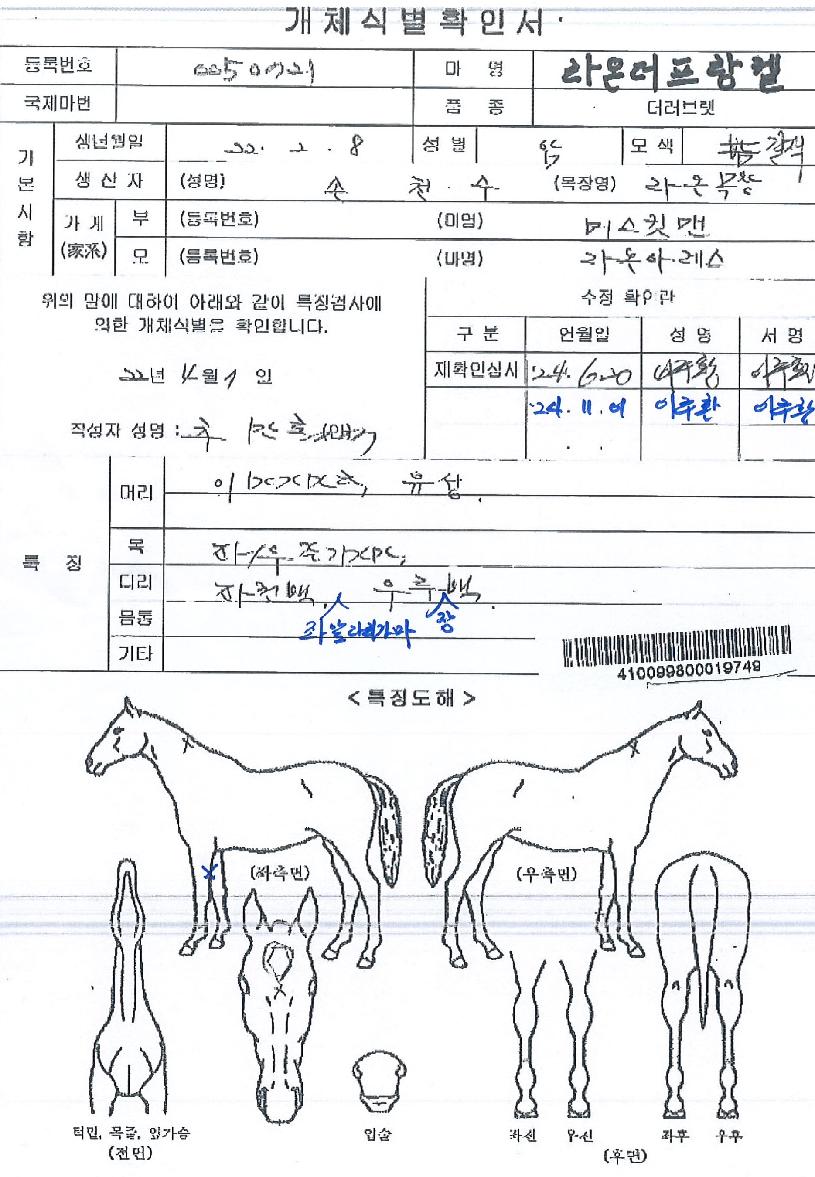 개체식별확인서
등록번호 0050721 마 명 라온더프랑켈
국제마번 품 종 더러브렛
기본사항
생년월일 22. 2. 8 성별 암 모색 갈색
생산자 (성명) 손 천 수 (목장명) 라온목장
가계(家系) 부 (등록번호) (마명) 머스킷맨
모 (등록번호) (마명) 라온아레스
위의 말에 대하여 아래와 같이 특징검사에
의한 개체식별을 확인합니다.
22년 월 일
작성자 성명 :
수정 확인란
구 분 연월일 성 명 서 명
재확인심사 '24. 6.20 이주환 이주환
'24. 11. 01 이주환 이주환
특 징
머리 유성.
목
다리 좌전백, 우후백.
장
몸통
기타
410099800019749
<특징도해>
(좌측면) (우측면)
턱밑, 목줄, 앞가슴
(전면)
입술
좌전 우전 좌후 우후
(후면)